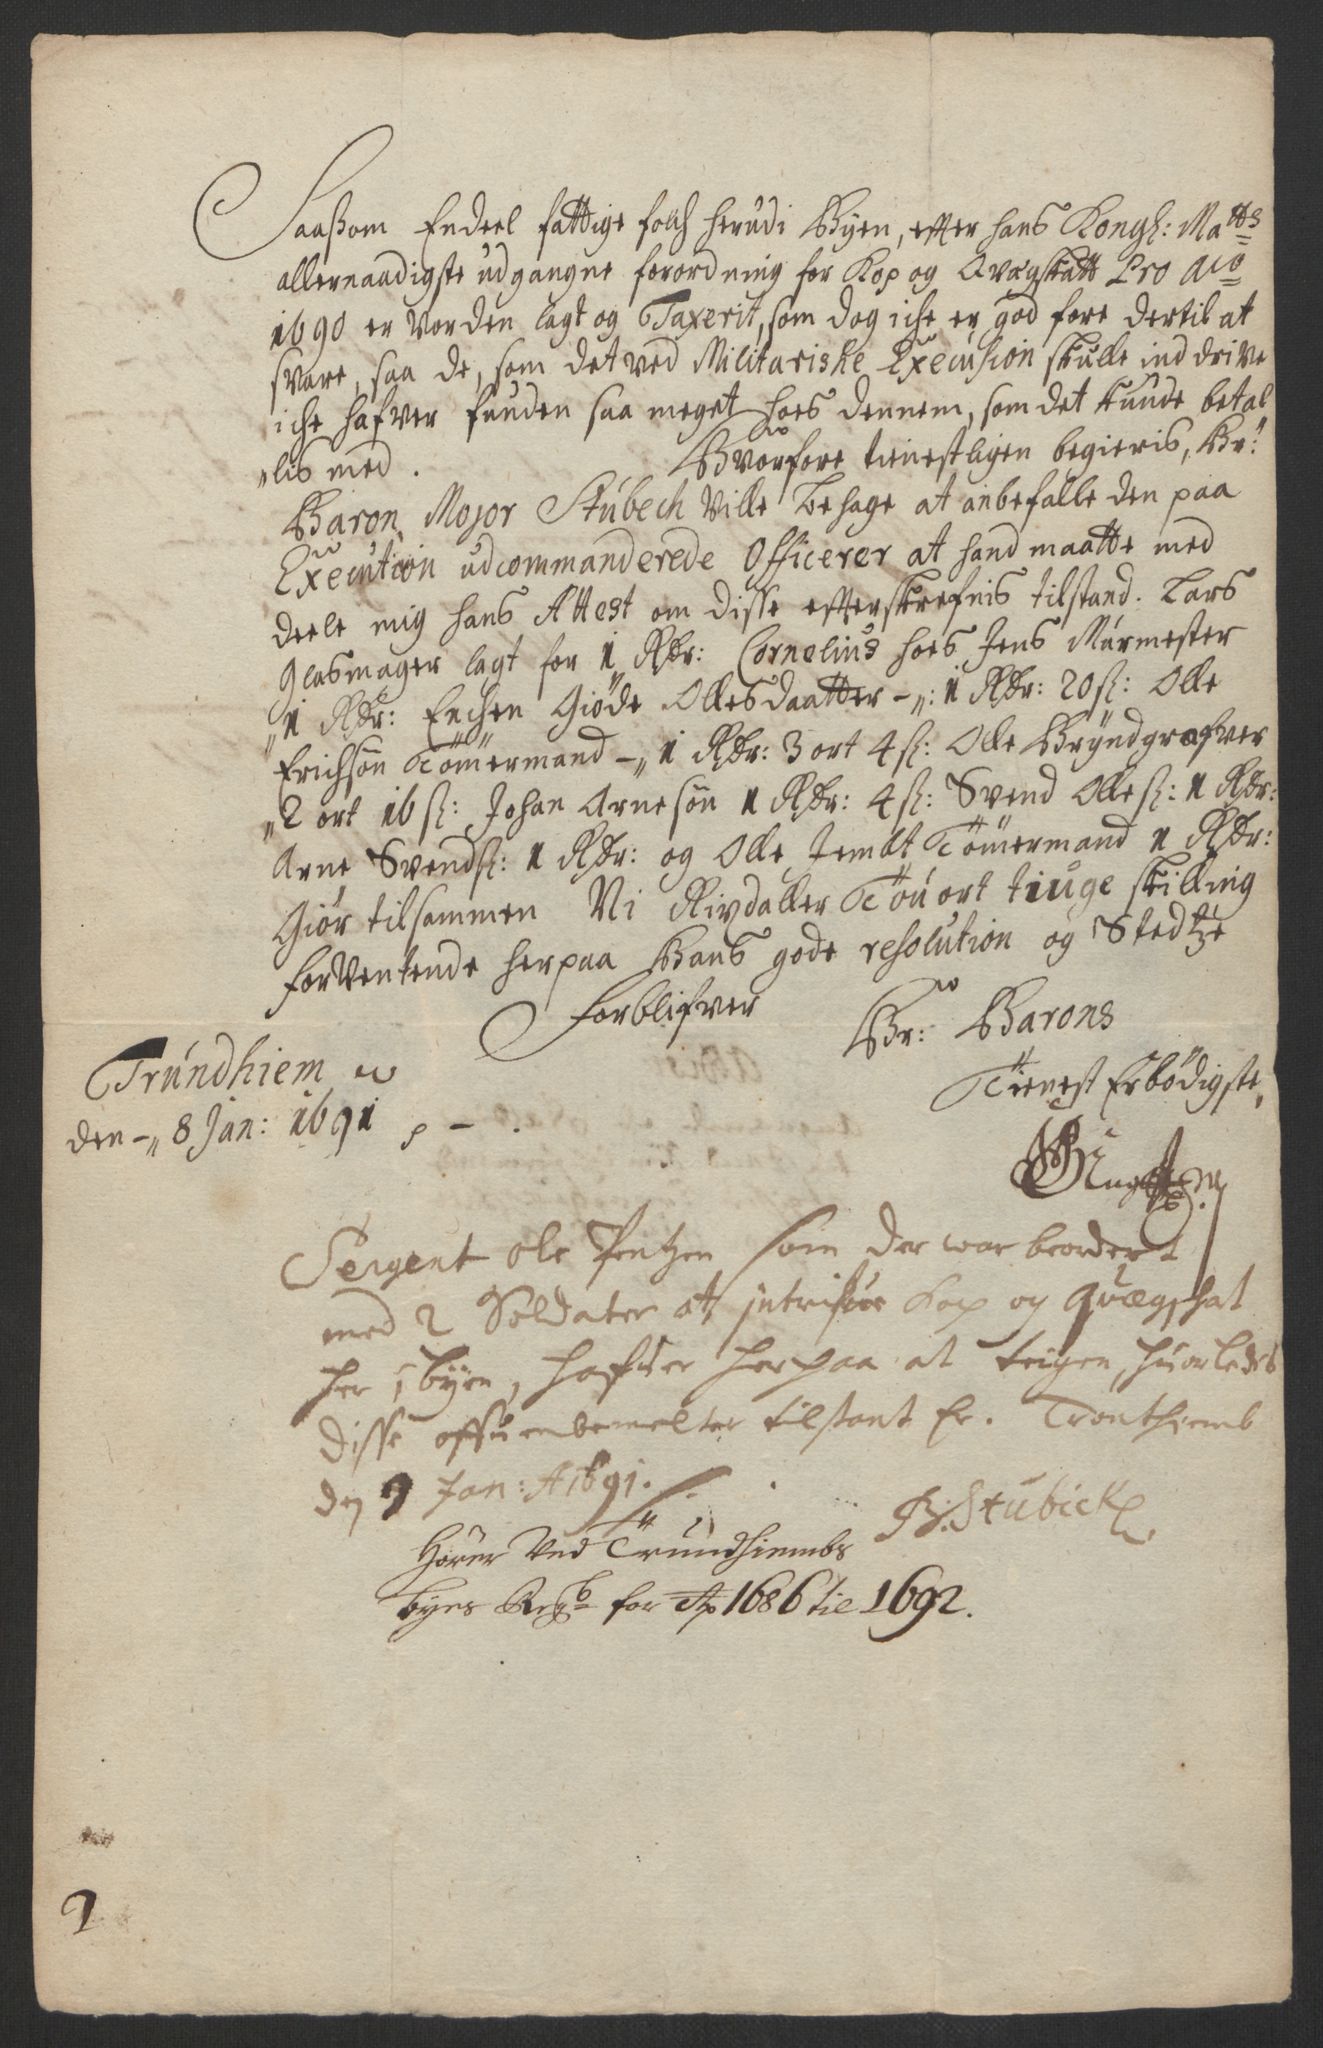 Saasom Endeel fattige folch herudi Byen, efter hans Kongl: Matts
allernaadigste udgangne forordning for Kop og Qvægskatt Pro Ao
1690 er vorden lagt og Taxerit, som dog iche er god fore dertil at
svare, saa de, som det ved Militariske Execusion skulle ind drive
iche hafver funden saa meget hoes dennem, som det kunde betal
"lis med. Hvorfore tienestligen begieris, Hr:
Baron Major Stübech ville behage at anbefalle den paa
Execution udcommanderede Officerer at hand maatte med
deele mig hans Attest om disse efterskrefnis tilstand. Lars
Glasmager lagt for 1 Rdr: Cornelius hoes Jens Murmester
"1 Rdr: Enchen Giøde Ollesdaatter -": 1 Rdr: 20 s: Olle
Erichsøn Tømermand -" 1 Rdr: 3 ort 4 s: Olle Bryndgrafver
"2 ort 16 s: Johan Arnesøn 1 Rdr: 4 s: Svend Olles: 1 Rdr:
Arne Svends: 1 Rdr: og Olle Jembt Tømermand 1 Rdr:
Giør tilsammen Ni Rixdaller Tou ort tiuge skilling
forventende herpaa Hans gode resolution og Stedtze
forblifver
Hr: Barons
Tienest Erbödigste,
Trundhiem
den -" 8 Jan: 1691
Sergent Ole Pentzen som der war beordert
med 2 Soldater at Kop og Quægschat
her i byen, hafuer herpaa at teigen, huorledes
disse offuenbemelter tilstant Er. Tronthiemb
den 9 Jan: A 1691.
Stubick
Hører Ved Trundhiembs
byes Regb for Ao 1686 til 1692.